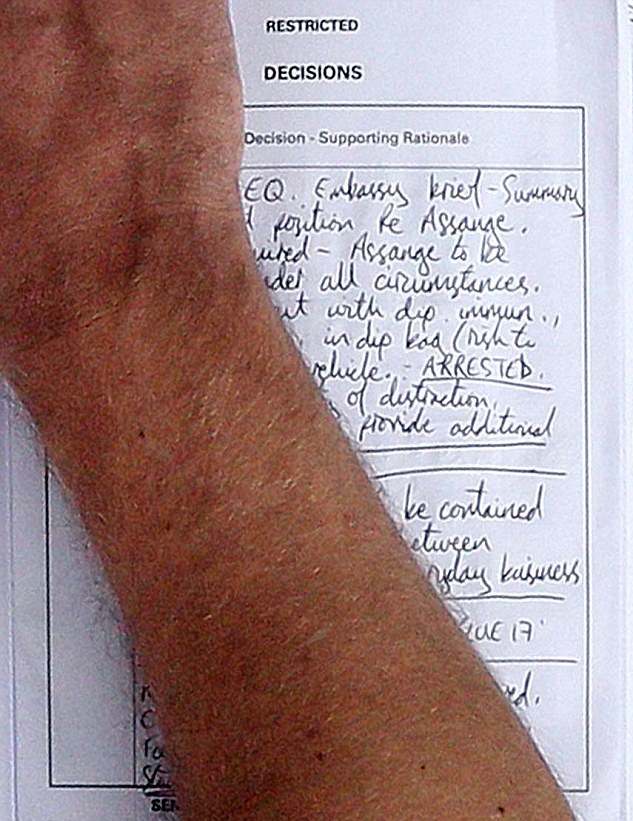 RESTRICTED
DECISIONS
Decision - Supporting Rationale
EQ. Embassy brief - Summary
position Re Assange.
- Assange to be
all circumstances.
with dip. immun.,
in dip bag (risk to
vehicle. - ARRESTED.
of distraction,
provide additional
be contained
business
17'